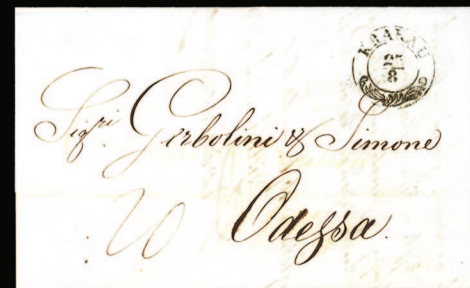 KRAKAU
25
8
Sigri Gerbolini & Simone
Odessa.
20